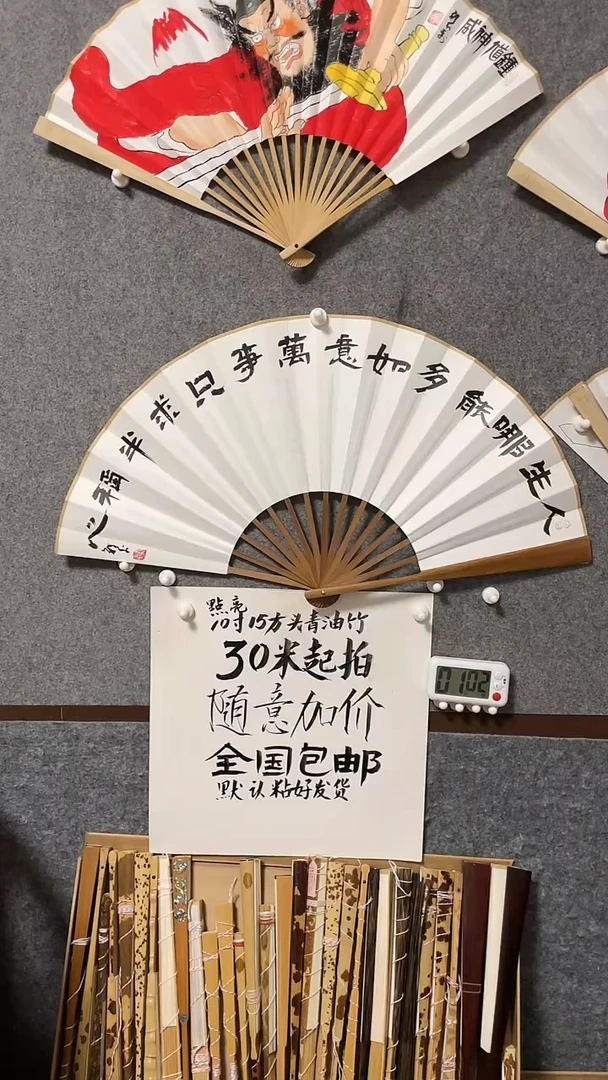 鍾馗神威
人生哪能多如意萬事只求半稱心
點亮
10寸15方头青油竹
30米起拍
随意加价
全国包邮
默认粘好发货
0102